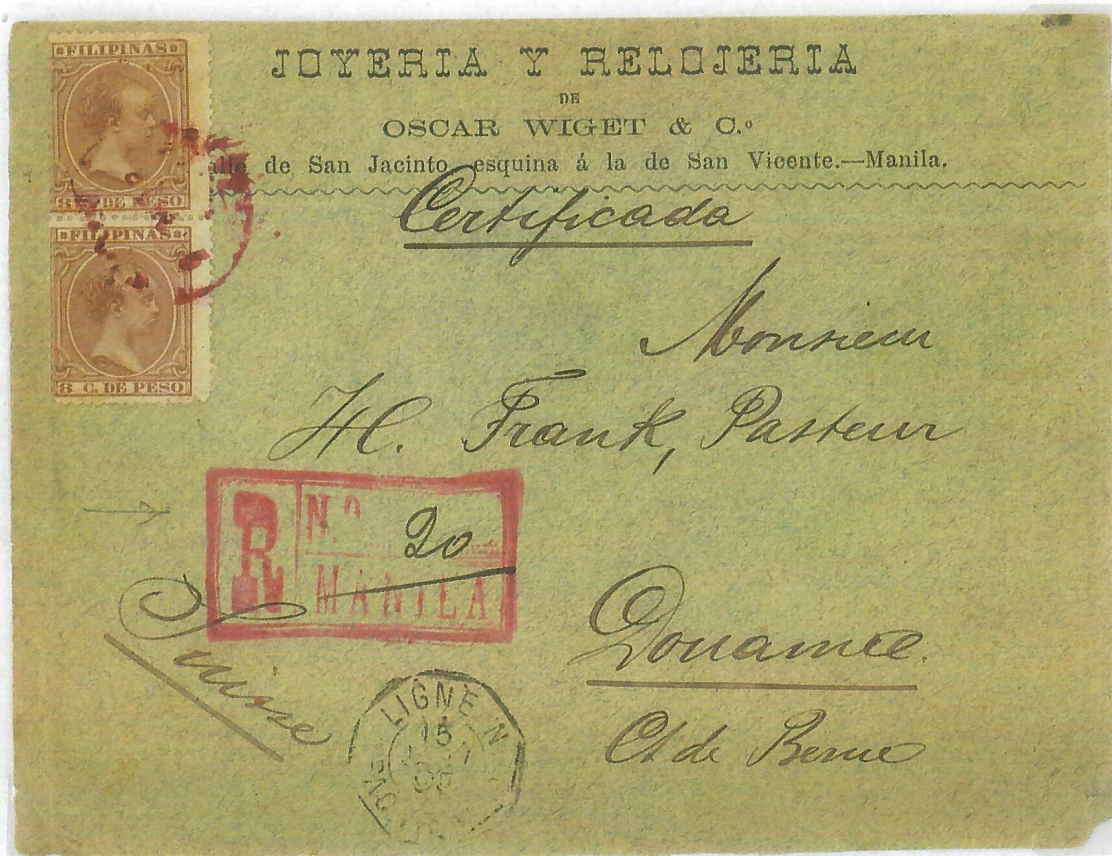 FILIPINAS
8 C. DE PESO
FILIPINAS
8 C. DE PESO
JOYERIA Y RELOJERIA
DE
OSCAR WIGET & C.º
de San Jacinto esquina á la de San Vicente.—Manila.
Certificada
Monsieur
H. Frank, Pasteur
R N.º 20
MANILA
Suisse
Douanne.
Ct de Berne
LIGNE N
15